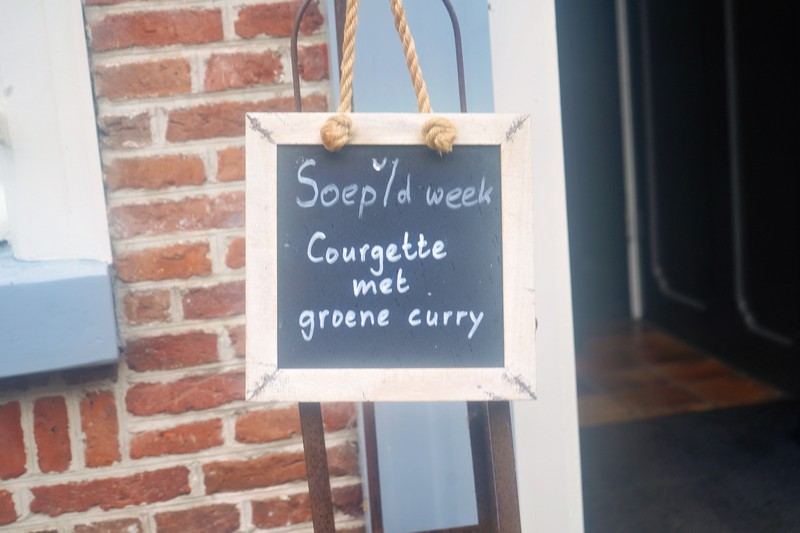 Soep v/d week
Courgette
met
groene curry